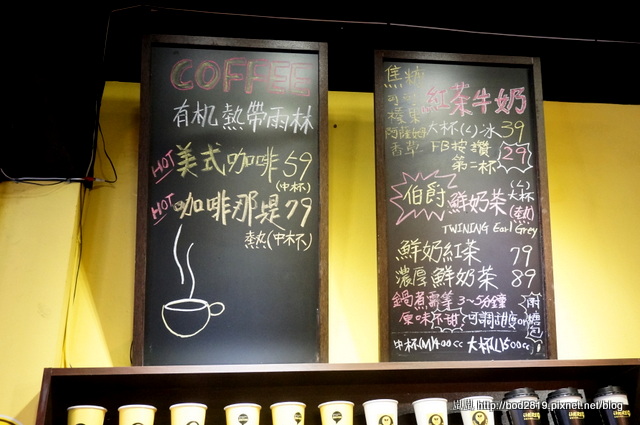 COFFEE
有机熱帶雨林
HOT 美式咖啡 59
(中杯)
HOT 咖啡那堤 79
熱(中杯)
焦糖
可可
榛果
阿薩姆
香草
紅茶牛奶
大杯(L)冰 39
FB按讚
第二杯 29
伯爵鮮奶茶 (L)大杯(熱)
TWINING Earl Grey
鮮奶紅茶 79
濃厚鮮奶茶 89
鍋煮需等 3~5分鐘
原味不甜 可調甜度or附糖包
中杯(M)400cc 大杯(L)500cc
http://bod2819.pixnet.net/blog